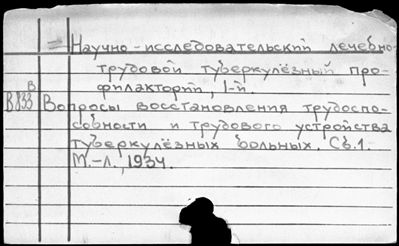 = Научно-исследовательский лечебно-
трудовой туберкулёзный про-
филакторий, 1-й.
В
В833 Вопросы восстановления трудоспо-
собности и трудового устройства
туберкулёзных больных. Сб.1.
М.-Л., 1934.